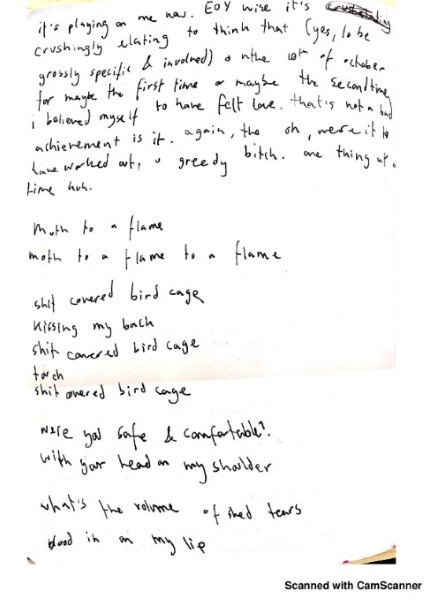 it's playing on me now. EOY wise it's
crushingly elating to think that (yes, to be
grossly specific & involved) on the 10th of october
for maybe the first time or maybe the second time
i believed myself to have felt love. that's not a bad
achievement is it. again, the oh, were it to
have worked out, u greedy bitch. one thing at a
time huh.
Moth to a flame
moth to a flame to a flame
shit covered bird cage
Kissing my back
shit covered bird cage
torch
shit covered bird cage
were you safe & comfortable?
with your head on my shoulder
what's the volume of shed tears
blood in on my lip
Scanned with CamScanner